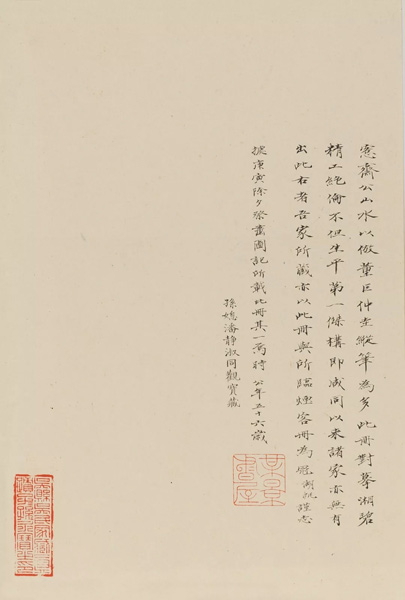 愙齋公山水以倣董巨仲圭縱筆為多此冊對摹湘碧
精工絕倫不但生平第一傑構即咸同以來諸家亦無有
出此右者吾家所藏亦以此冊與所臨煙客冊為 謹志
據庚寅除夕祭書圖記所載此冊其一焉時 公年五十六歲
孫媳潘靜淑同觀寶藏
某景書屋